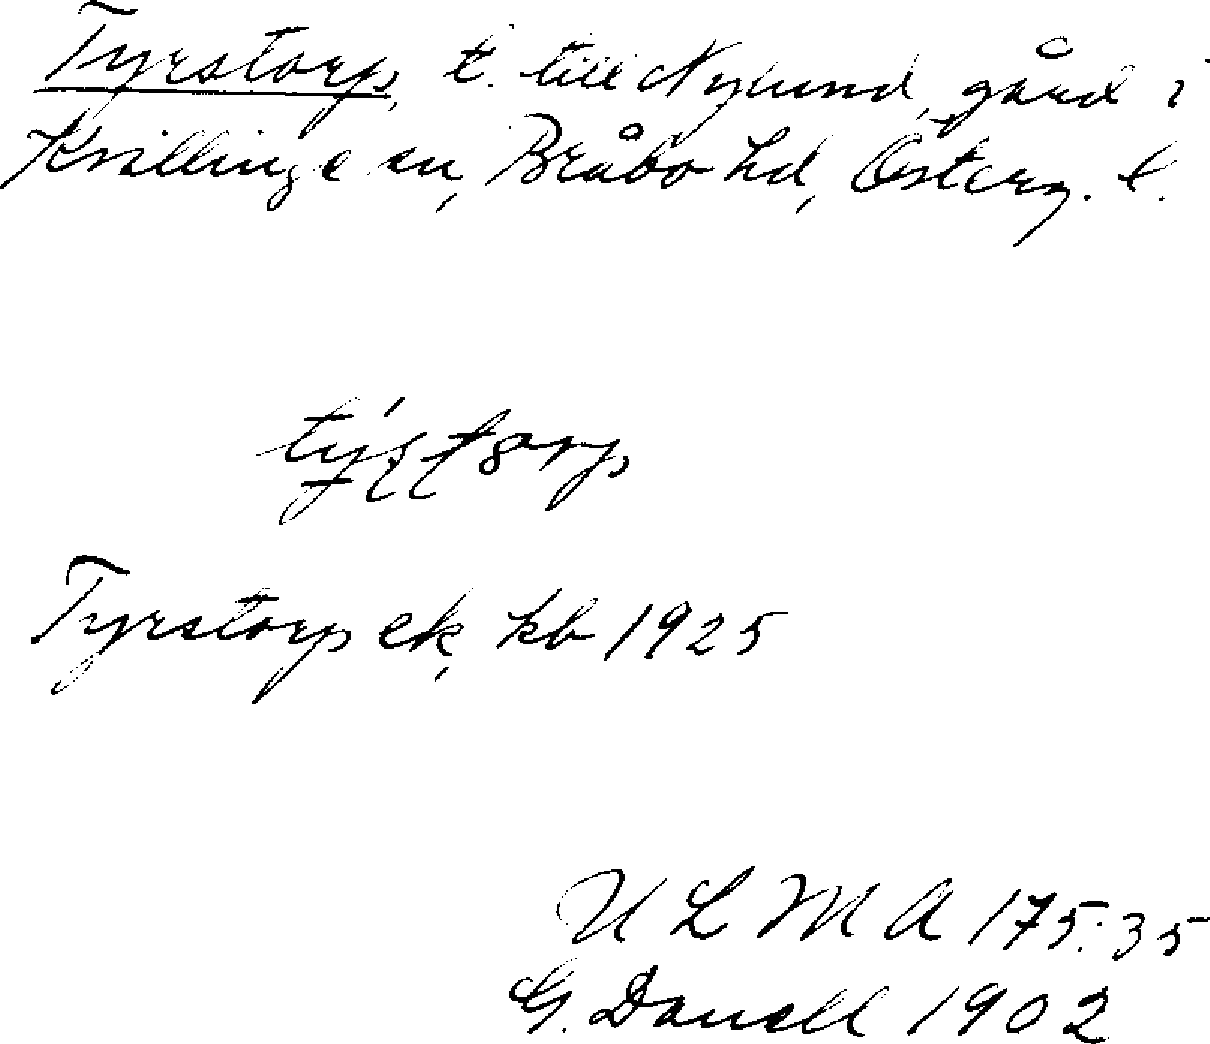 Tyrstorp, t. till Nylund, gård i
Kvillinge sn, Bråbo hd, Österg. l.
Tyrstorp ek, kb 1925
U L M A 175:35
G. Danell 1902